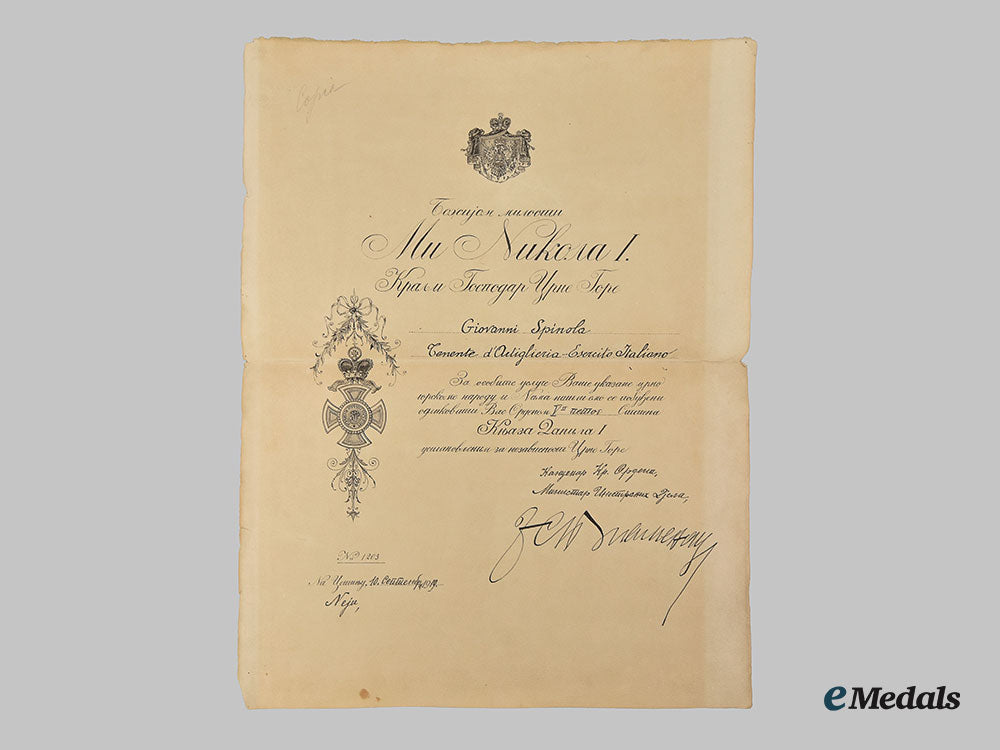 Copia
Божијом милошћу
Ми Никола I.
Краљ и Господар Црне Горе
Giovanni Spinola
Tenente d'Artiglieria - Esercito Italiano
За особите услуге Ваше указане црно
горскоме народу и Нама нашли смо се побуђени
одликовати Вас Орденом Vог петог Степена
Књаза Данила I
установљеним за независност Црне Горе
Канцелар Кр. Ордена,
Министар Иностраних Дјела,
№ 1203
На Цетињу, 10. Септембра 1919.
Neju,
eMedals